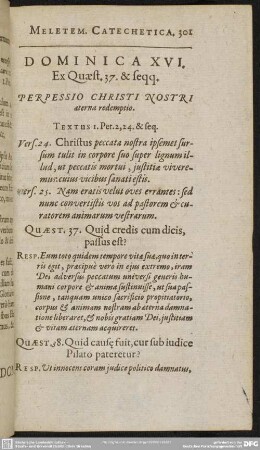 MELETEM. CATECHETICA. 301
DOMINICA XVI.
Ex Quæst. 37. & seqq.
PERPESSIO CHRISTI NOSTRI
æterna redemptio.
TEXTUS 1. Pet. 2, 24. & seq.
Vers. 24. Christus peccata nostra ipsemet sur-
sum tulit in corpore suo super lignum il-
lud, ut peccatis mortui, justitia vivere-
mus: cuius vicibus sanati estis.
Vers. 25. Nam eratis velut oves errantes: sed
nunc convertistis vos ad pastorem & cu-
ratorem animarum vestrarum.
QUÆST. 37. Quid credis cum dicis,
passus est?
RESP. Eum toto quidem tempore vitæ suæ, quo in ter-
ris egit, præcipuè verò in ejus extremo, iram
Dei adversus peccatum universi generis hu-
mani corpore & anima sustinuisse, ut sua pas-
sione, tanquam unico sacrificio propitiatorio,
corpus & animam nostram ab æterna damna-
tione liberaret, & nobis gratiam Dei, justitiam
& vitam æternam acquireret.
QUÆST. 38. Quid causę fuit, cur sub iudice
Pilato pateretur?
RESP. Ut innocens coram judice politico damnatus,
DFG